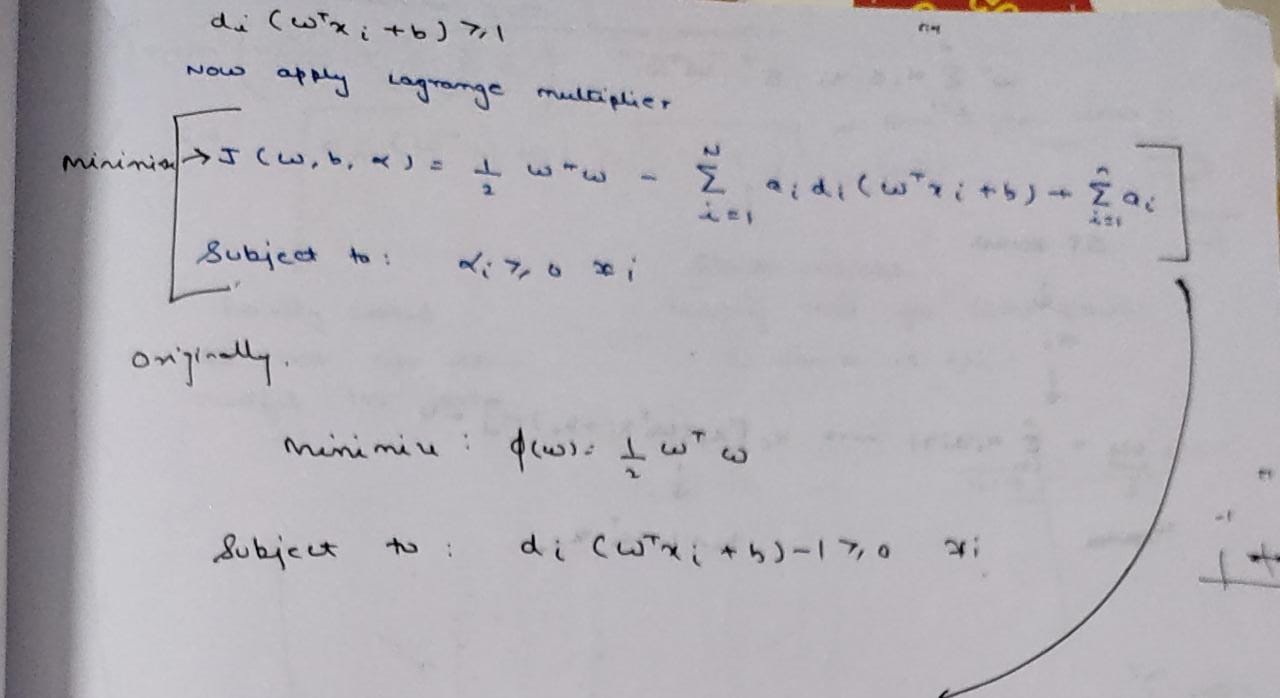 di (wᵀxi + b) ≥ 1
Now apply Lagrange multiplier
J (w, b, α) = 1/2 wᵀw - N Σ i=1 ai di (wᵀxi + b) + n Σ i=1 ai
Subject to: αi ≥ 0 xi
Originally.
Minimize : φ(w) = 1/2 wᵀ w
Subject to : di (wᵀxi + b) - 1 ≥ 0 xi